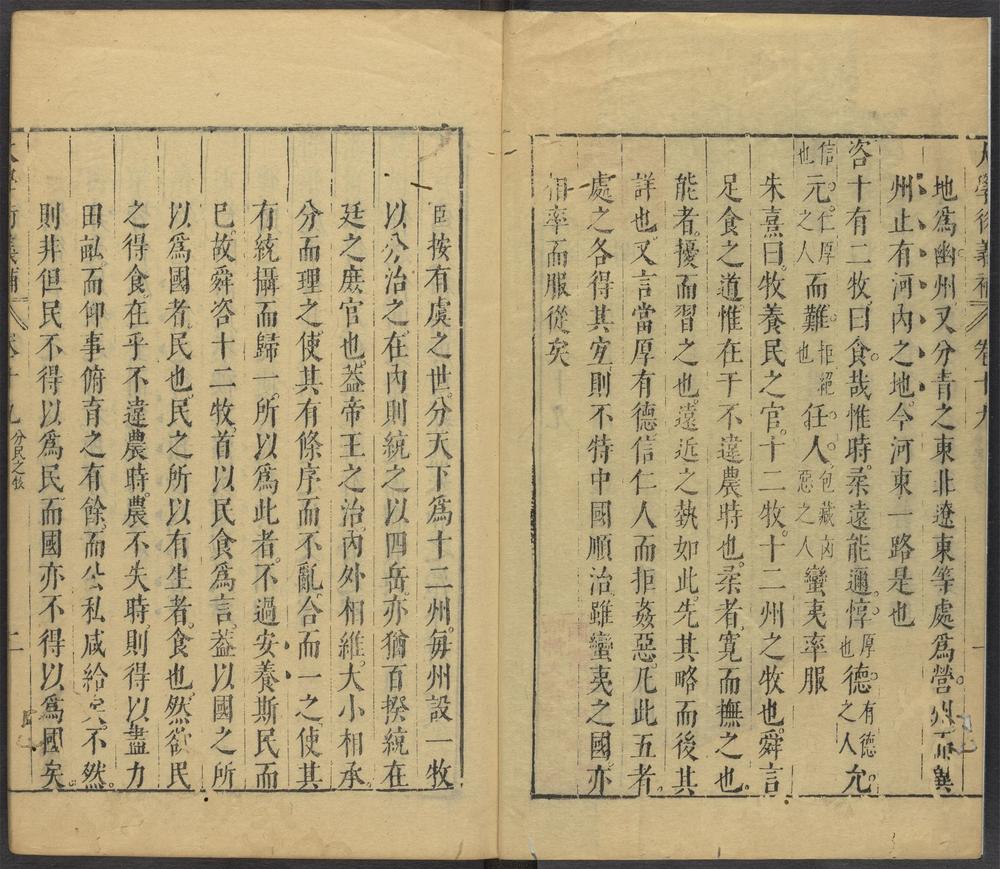 大學衍義補 卷十九 一
地爲幽州又分青之東北遼東等處爲營州而冀
州止有河內之地今河東一路是也
咨十有二牧曰食哉惟時柔遠能邇惇厚也德有德之人允
信也元仁厚之人而難拒絕也任人包藏凶惡之人蠻夷率服
朱熹曰牧養民之官十二牧十二州之牧也舜言
足食之道惟在于不違農時也柔者寬而撫之也
能者擾而習之也遠近之勢如此先其略而後其
詳也又言當厚有德信仁人而拒姦惡凡此五者
處之各得其宜則不特中國順治雖蠻夷之國亦
相率而服從矣
臣按有虞之世分天下爲十二州每州設一牧
以分治之在內則統之以四岳亦猶百揆統在
廷之庶官也葢帝王之治內外相維大小相承
分而理之使其有條序而不亂合而一之使其
有統攝而歸一所以爲此者不過安養斯民而
已故舜咨十二牧首以民食爲言葢以國之所
以爲國者民也民之所以有生者食也然欲民
之得食在乎不違農時農不失時則得以盡力
田畝而仰事俯育之有餘而公私咸給矣不然
則非但民不得以爲民而國亦不得以爲國矣
大學衍義補 卷十九 分民之牧 二